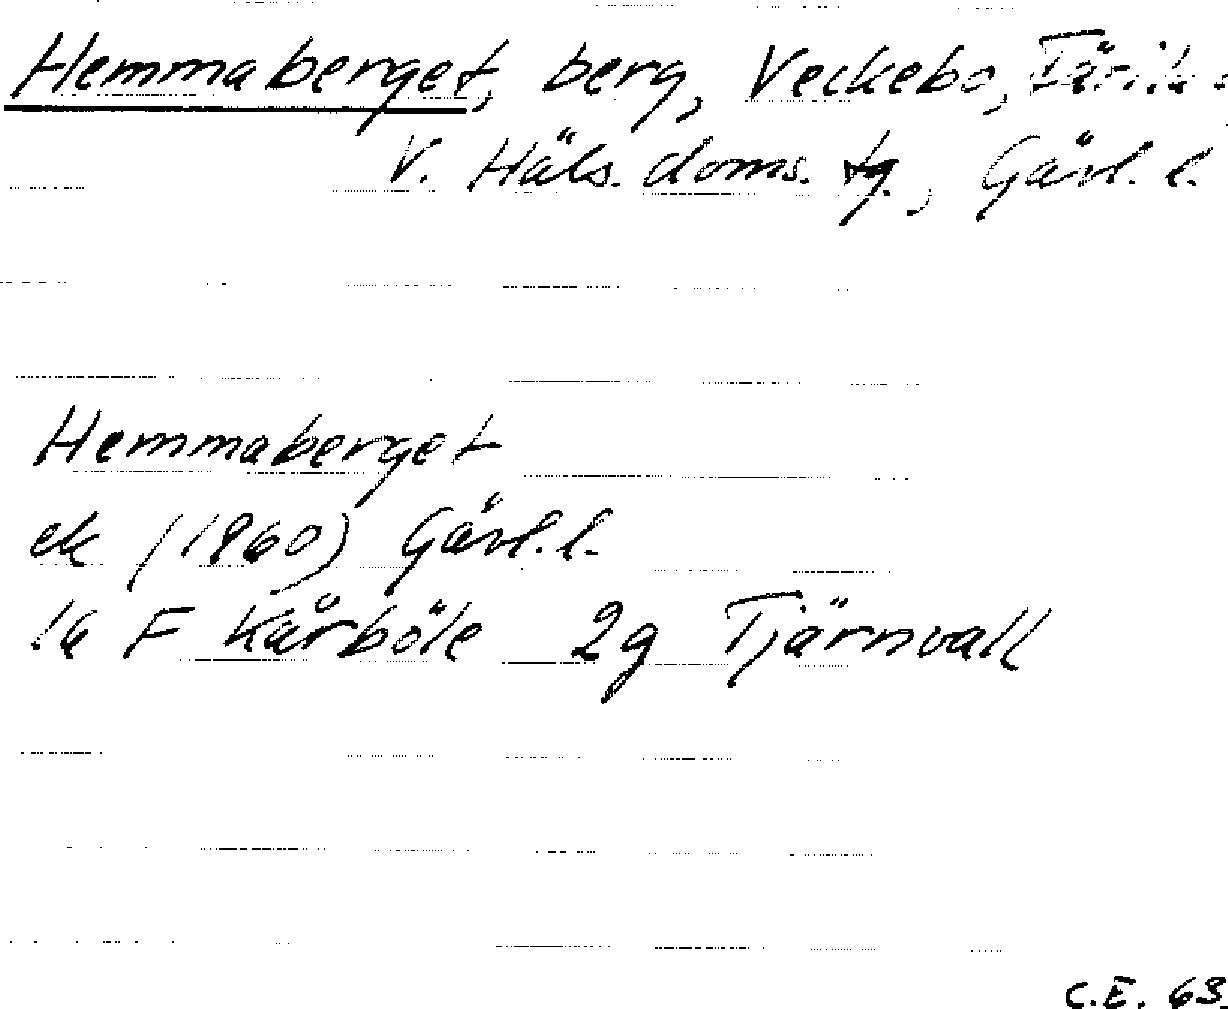 Hemmaberget, berg, Veckebo, Färila
V. Häls. doms. tg., Gävl. l.
Hemmaberget
ek (1960) Gävl. l.
16 F Kårböle 2g Tjärnvall
C.E. 63